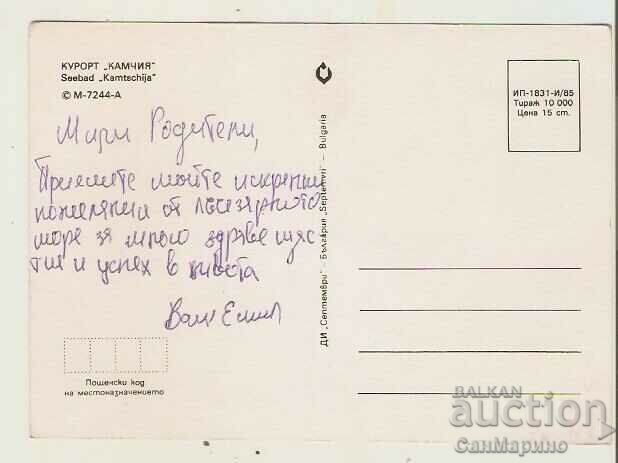 КУРОРТ „КАМЧИЯ“
Seebad „Kamtschija“
© М-7244-А
Мили Родители,
Приемите мойте искрени
пожелания от лазурното
море за много здраве щяс
тие и успех в живота
Ваш Емил
Пощенски код
на местоназначението
ДИ „Септември“ – България „Septemvri“ – Bulgaria
ИП-1831-И/85
Тираж 10 000
Цена 15 ст.
BALKAN
auction
СанМарино